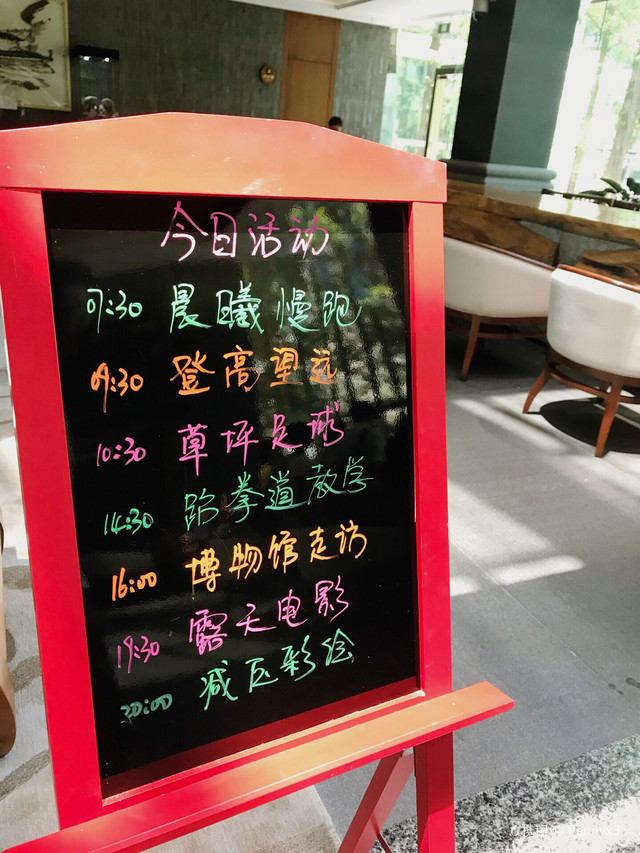 今日活动
07:30 晨曦慢跑
09:30 登高望远
10:30 草坪足球
14:30 跆拳道教学
16:00 博物馆走访
19:30 露天电影
20:00 减压彩绘
Pennyx3